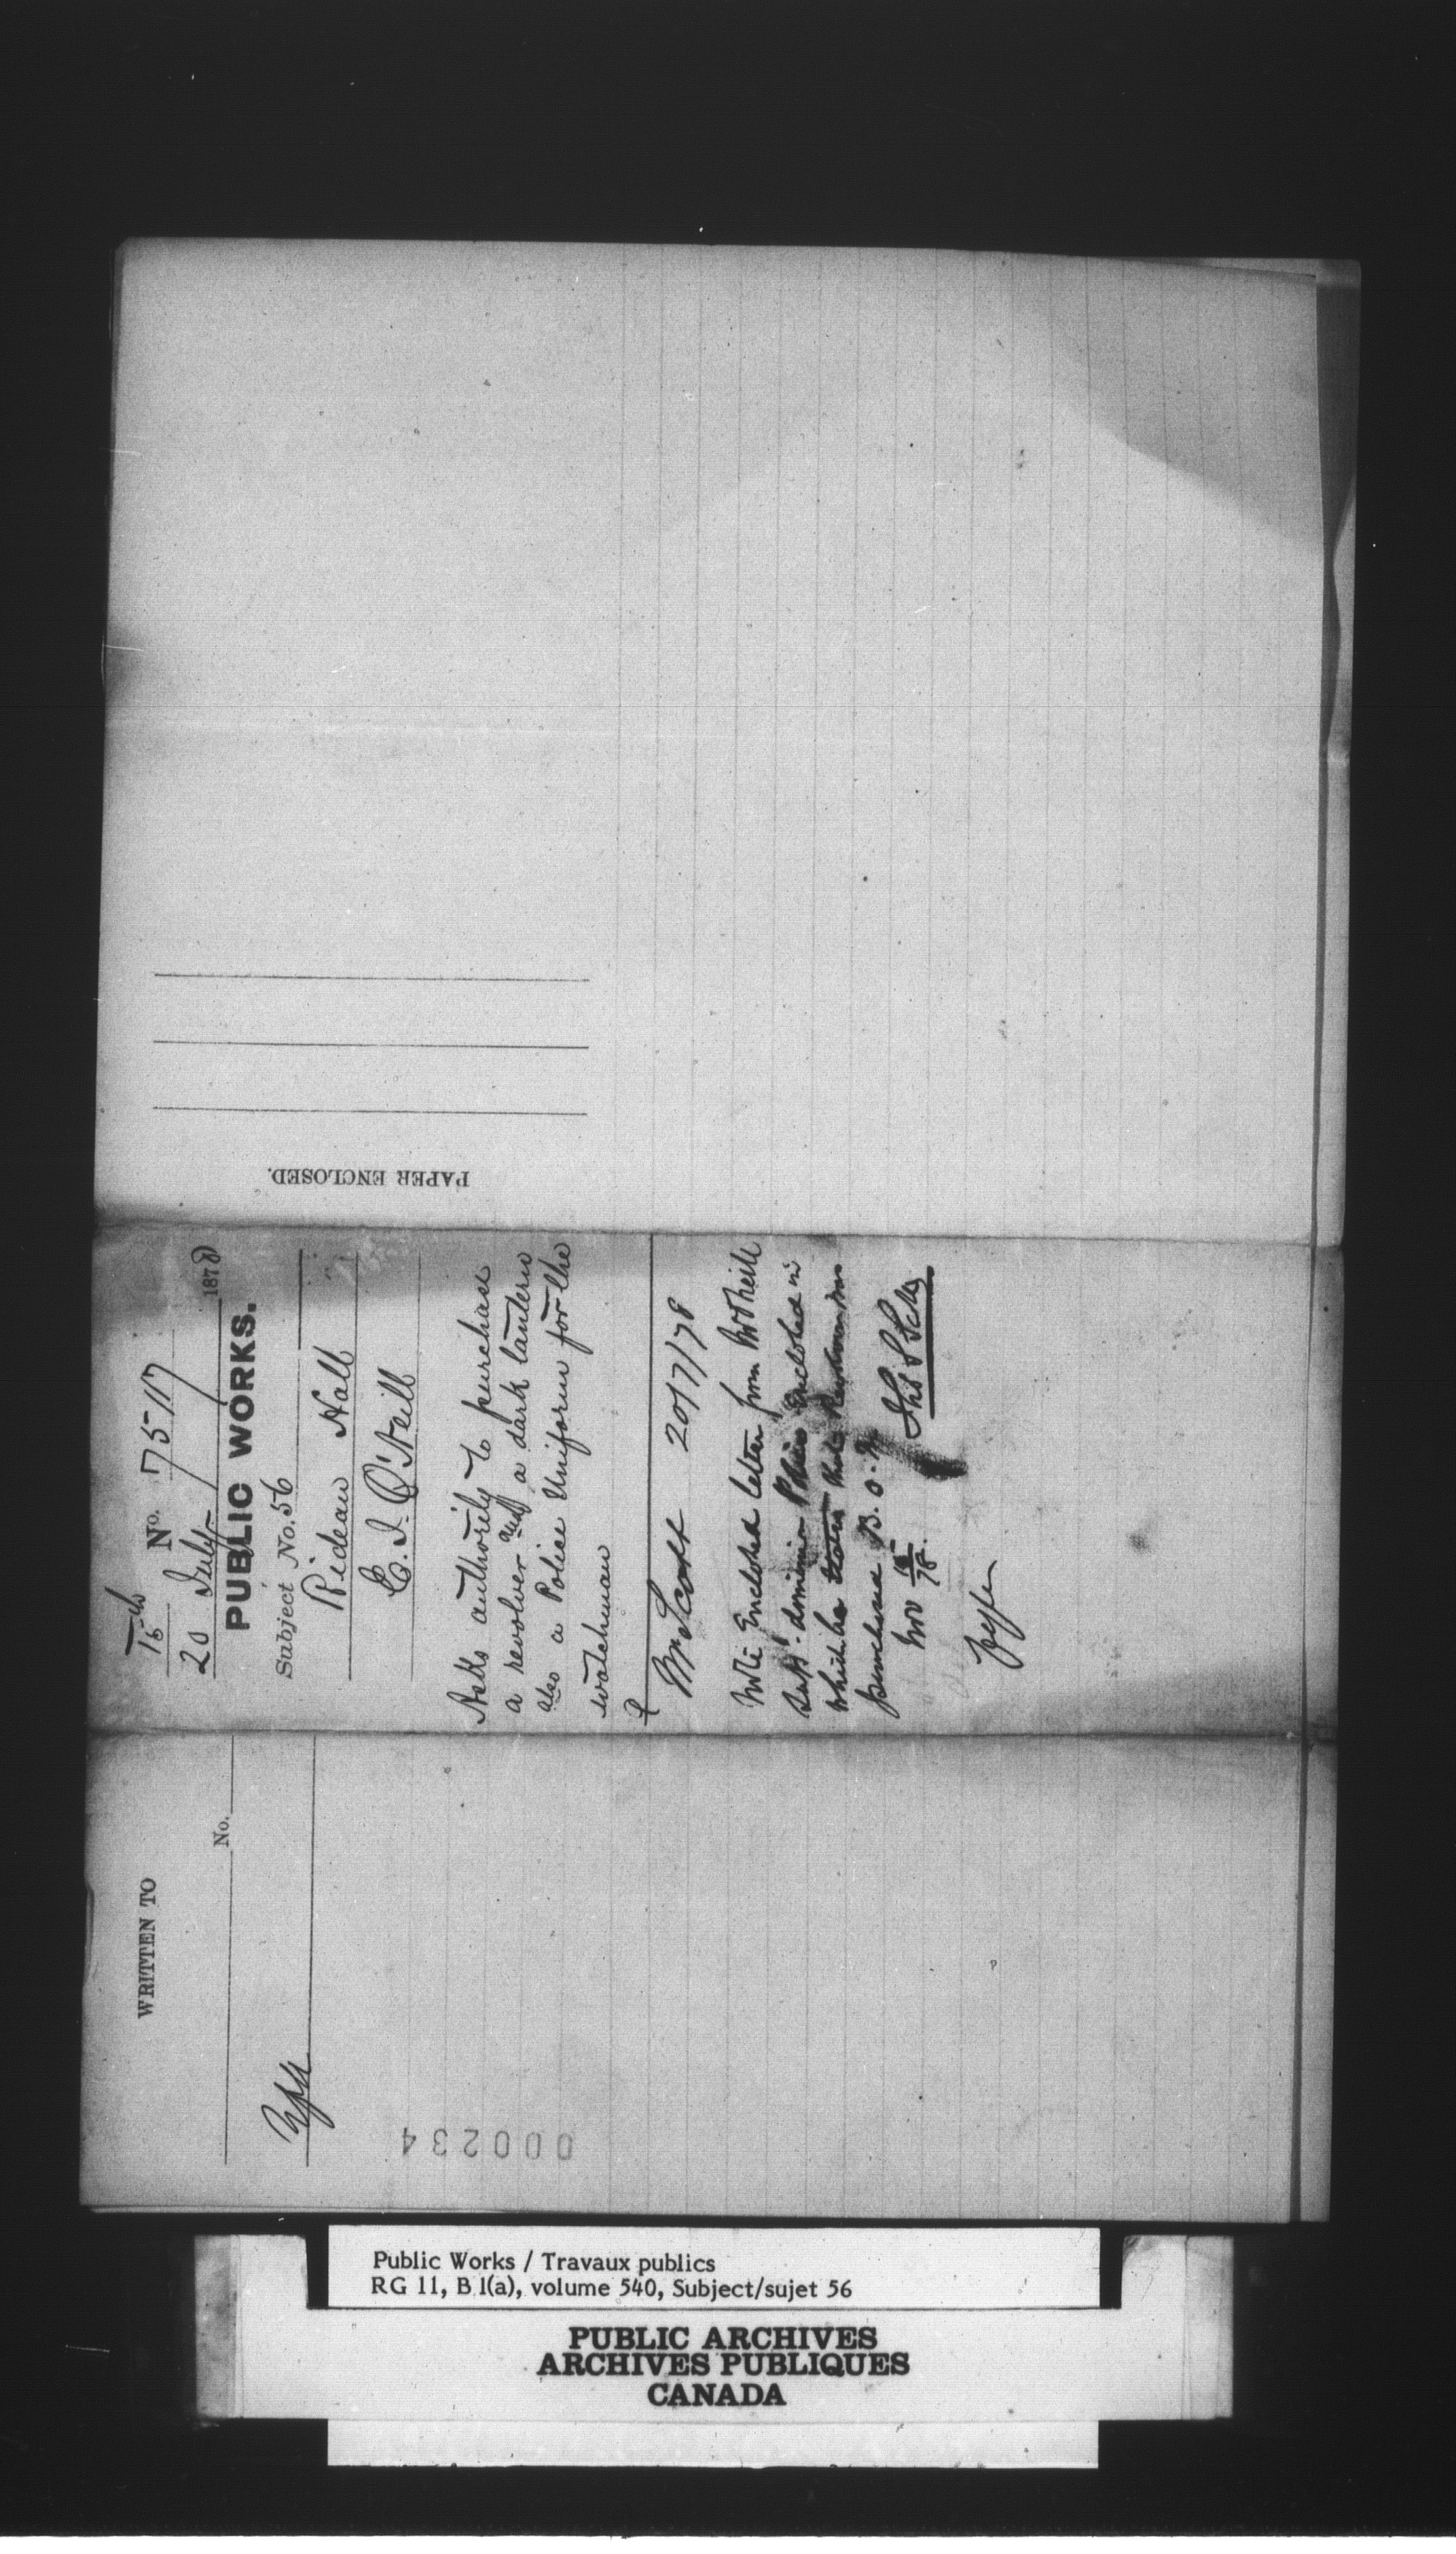 15th
No. 75117
20 July 1878
PUBLIC WORKS.
Subject No. 56
Rideau Hall
E. J. O'Neill
Asks authority to purchase
a revolver and a dark lantern
also a Police Uniform for the
watchman
Mr Scott 20/7/78
Note Enclosed letter from Mr O'Neill
Supt. Dominion Police enclosed in
which he that
purchased B.O.W
Nov 15/78.
PAPER ENCLOSED.
WRITTEN TO
No.
000234
Public Works / Travaux publics
RG 11, B 1(a), volume 540, Subject/sujet 56
PUBLIC ARCHIVES
ARCHIVES PUBLIQUES
CANADA